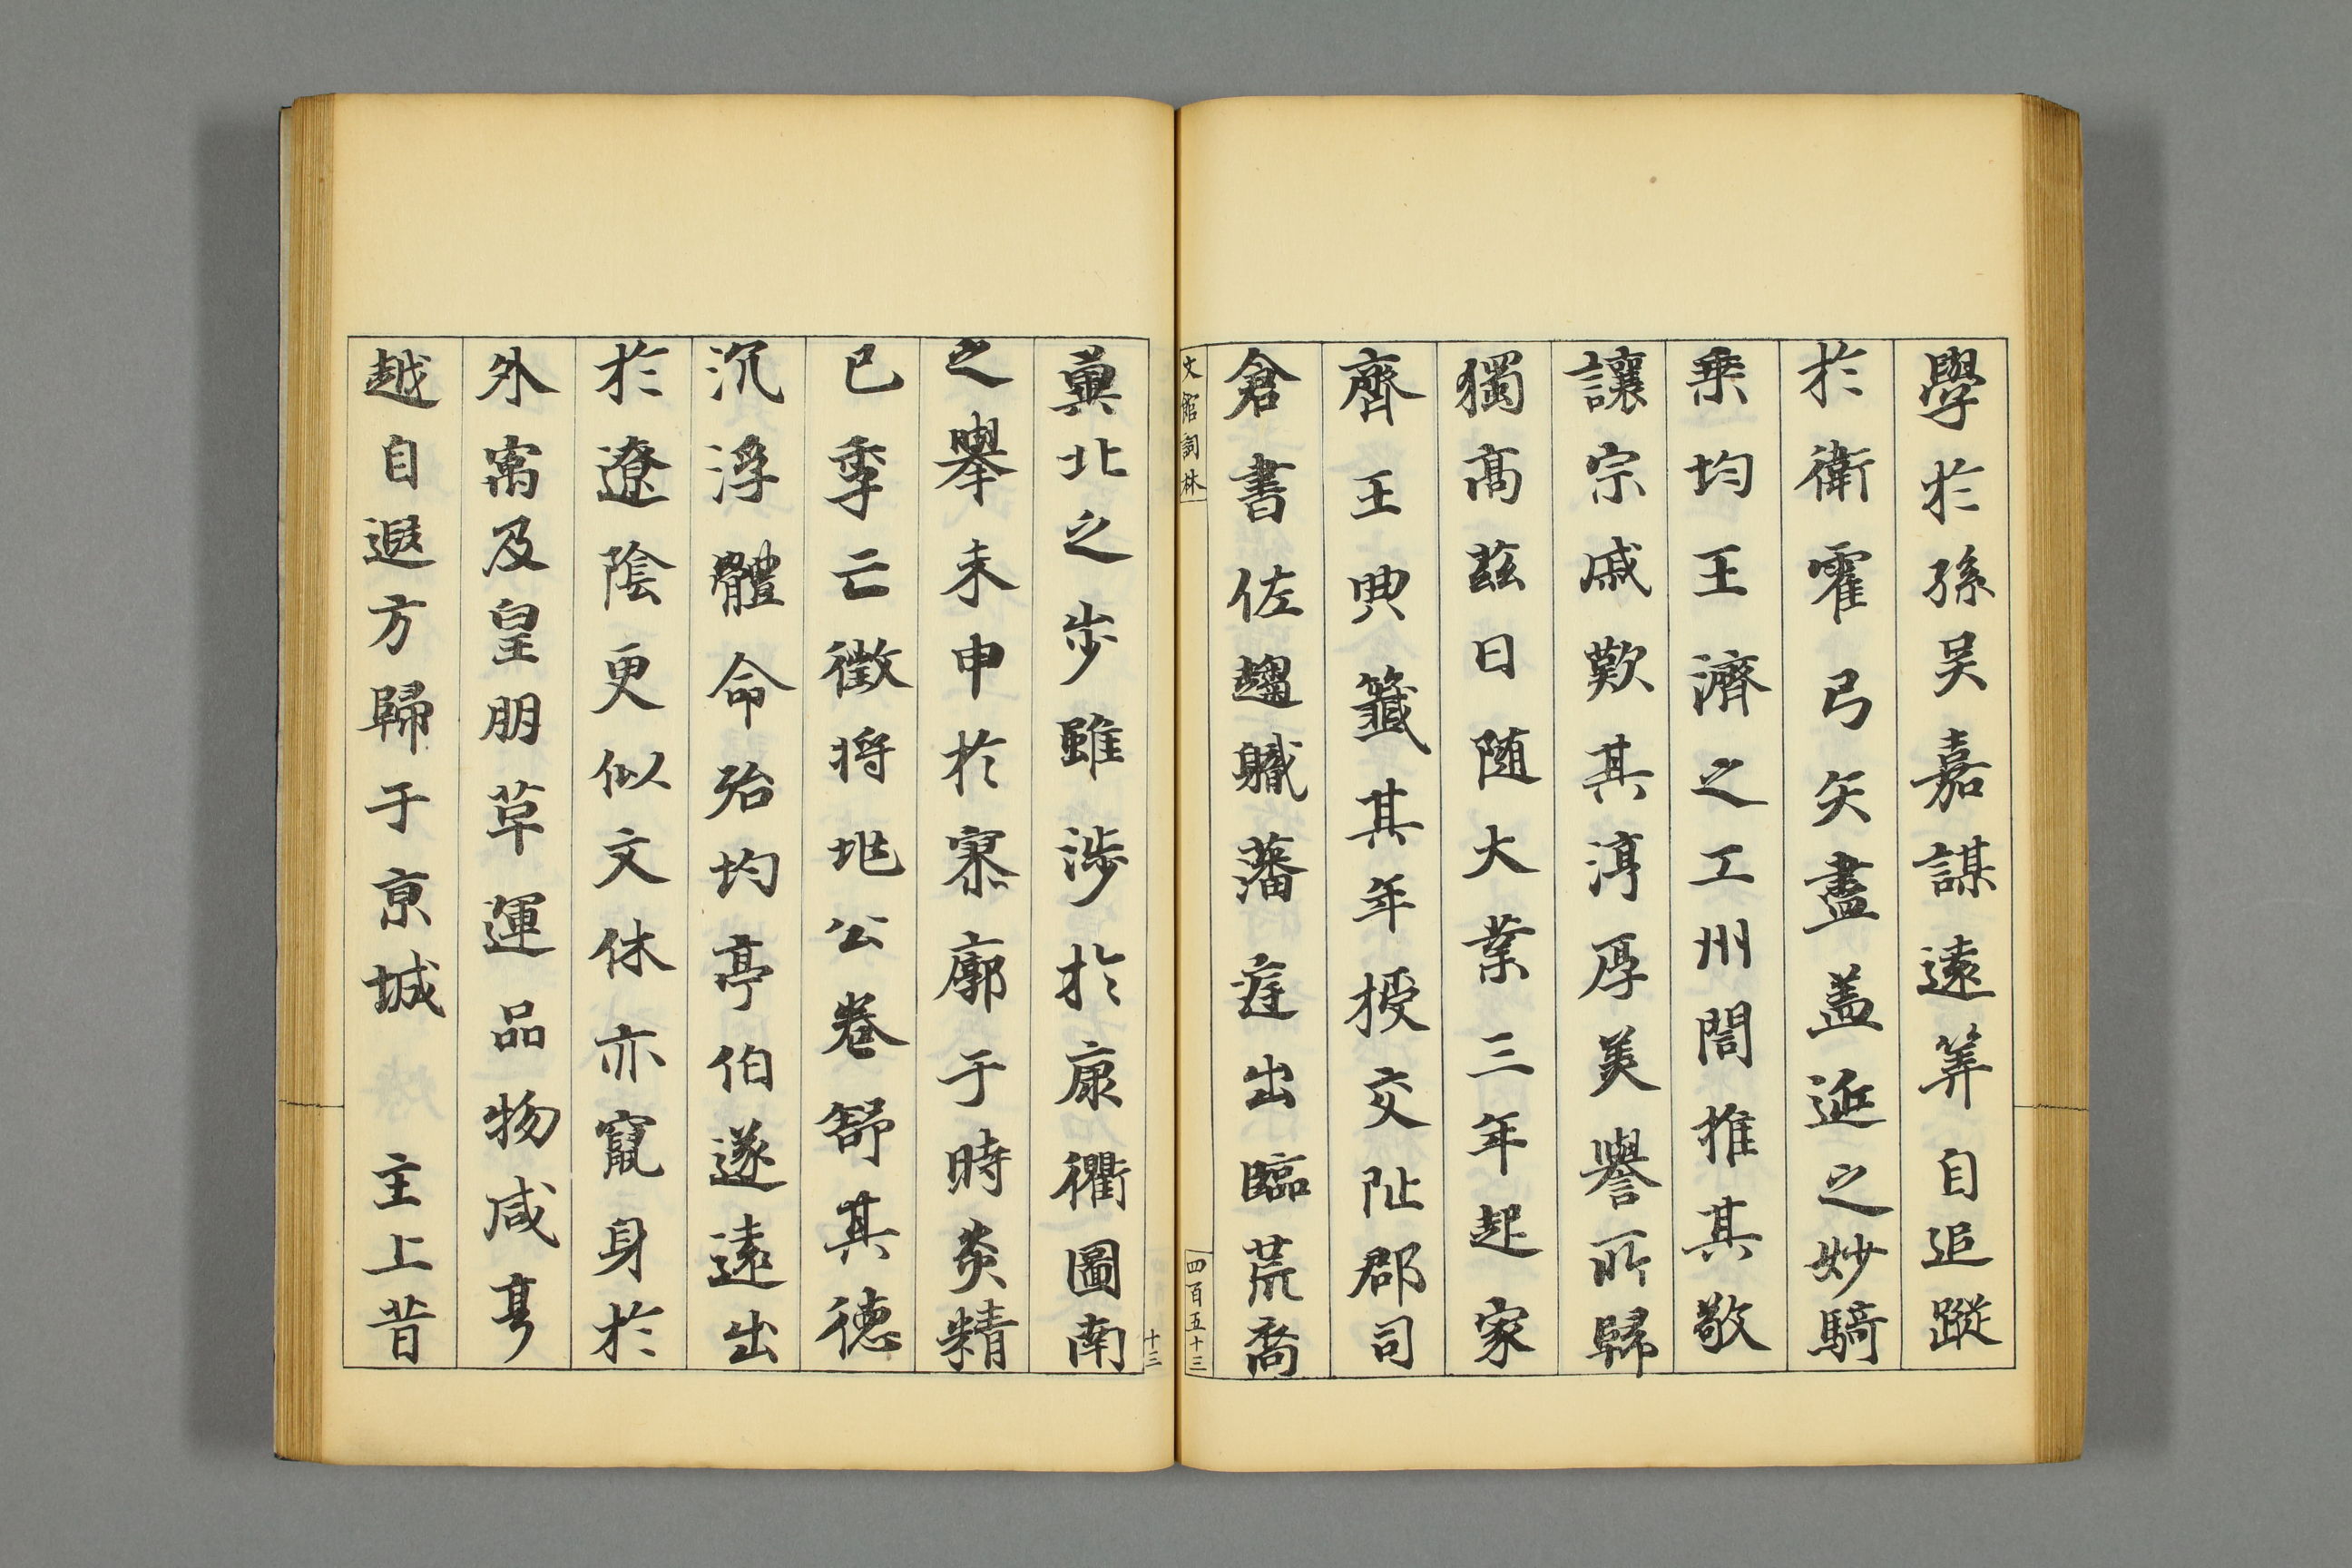 學於孫吳嘉謀遠筭自追蹤
於衛霍弓矢盡蓋逅之妙騎
乗均王濟之工州閭推其敬
讓宗戚歎其淳厚美譽所歸
獨髙茲日随大業三年起家
齊王典籤其年授交阯郡司
倉書佐趨職藩庭出臨荒裔
文館詞林
四百五十三
十三
冀北之步雖渉於康衢圖南
之舉未申於寥廓于時炎精
已季亡徵将兆公巻舒其徳
沉浮體命殆均亭伯遂遠出
於遼陰更似文休亦竄身於
外寓及皇朋草運品物咸亨
越自遐方歸于京城 主上昔